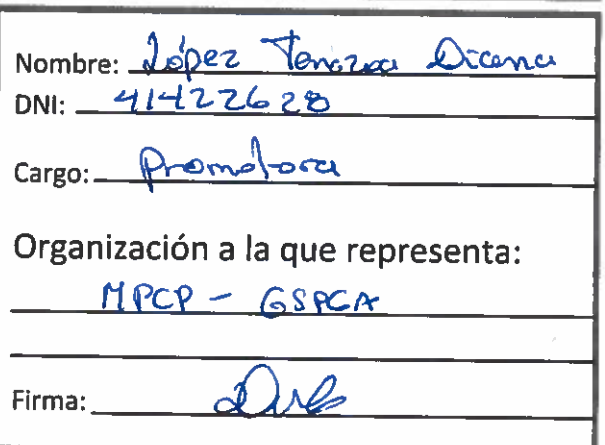 Nombre: López Tenazoa Diana
DNI: 41422628
Cargo: Promotora
Organización a la que representa:
MPCP - GSPGA
Firma: